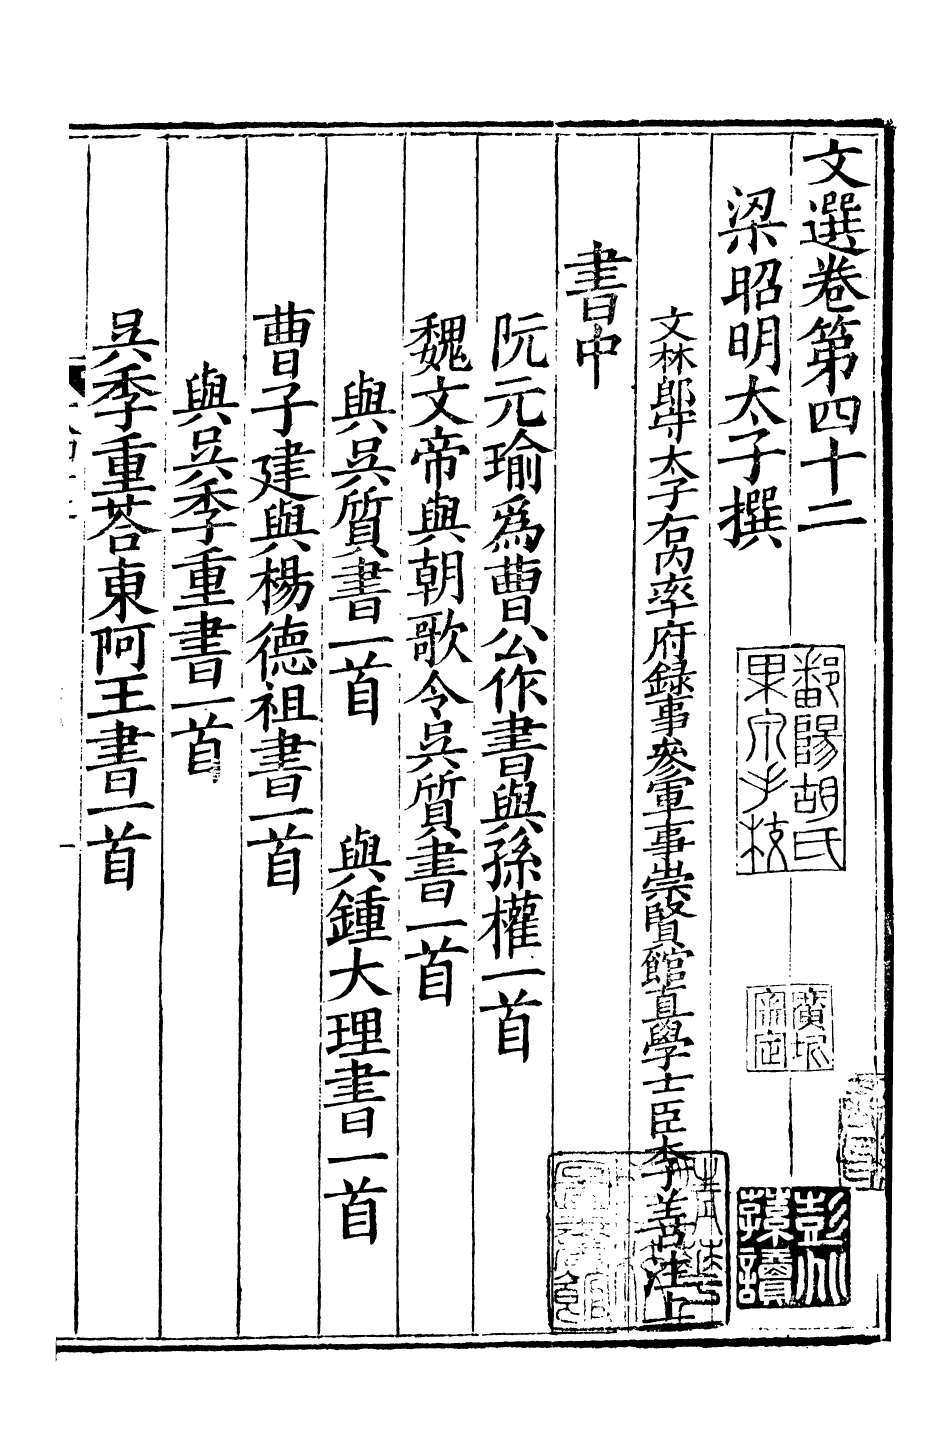 文選卷第四十二
梁昭明太子撰
文林郎守太子右內率府録事參軍事崇賢館直學士臣李善注上
書中
阮元瑜爲曹公作書與孫權一首
魏文帝與朝歌令吳質書一首
與吳質書一首　與鍾大理書一首
曹子建與楊德祖書一首
與吳季重書一首
吳季重荅東阿王書一首
鄱陽胡氏
果泉手校
彭州
孫讀